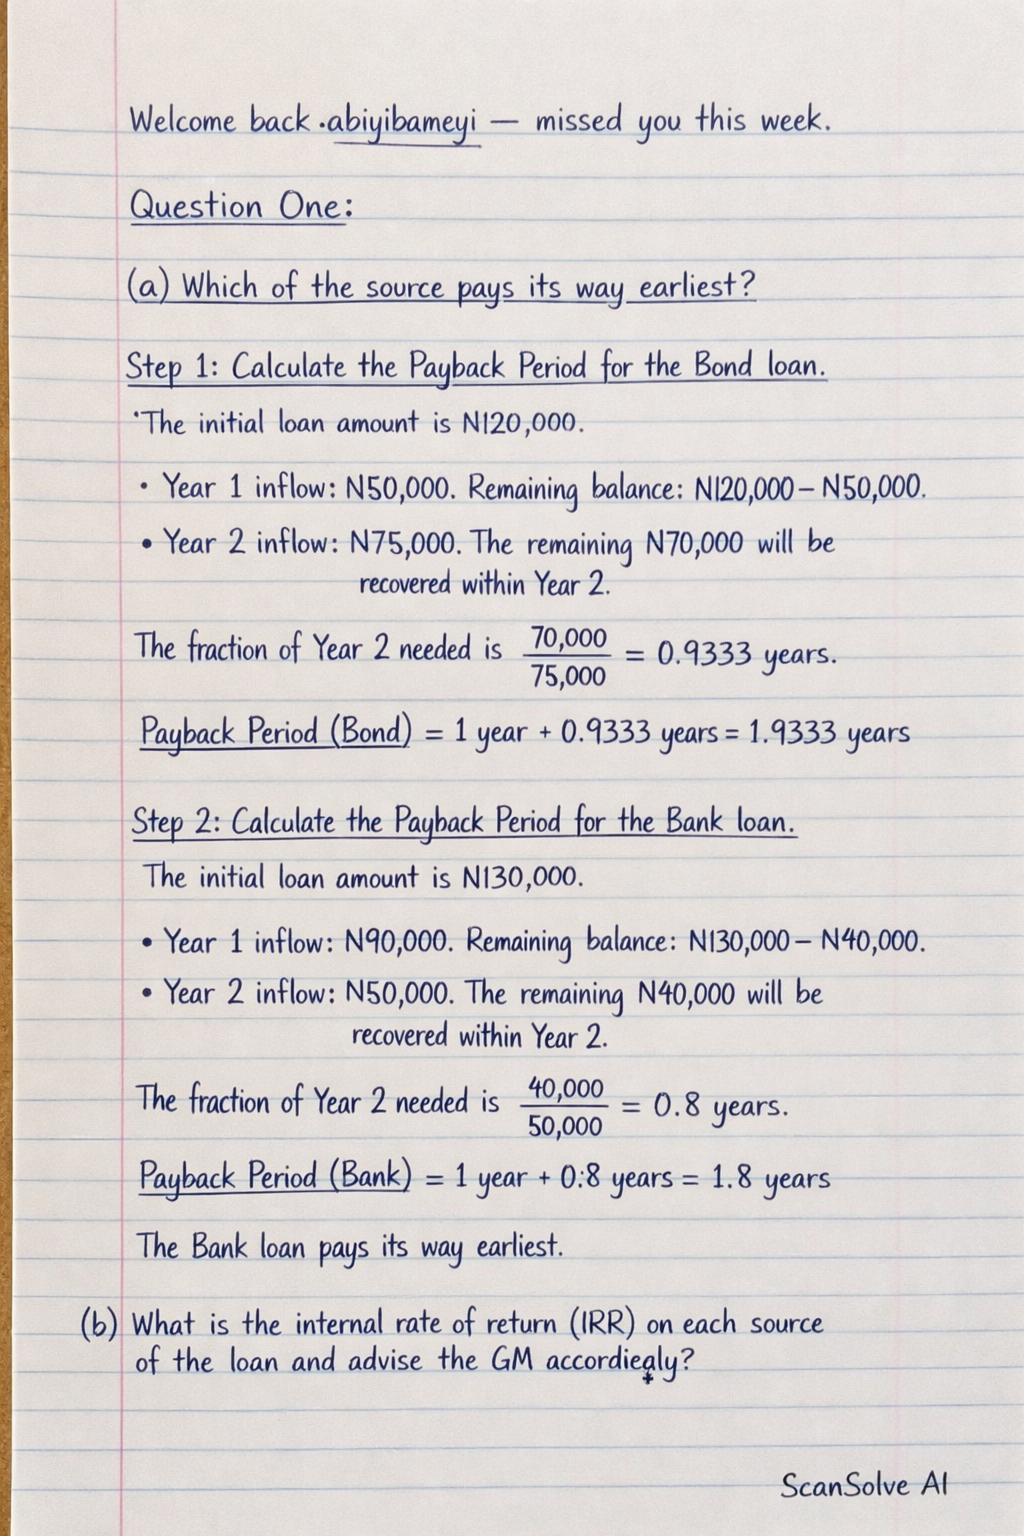 Welcome back .abiyibameyi — missed you this week.
Question One:
(a) Which of the source pays its way earliest?
Step 1: Calculate the Payback Period for the Bond loan.
·The initial loan amount is N120,000.
• Year 1 inflow: N50,000. Remaining balance: N120,000 – N50,000.
• Year 2 inflow: N75,000. The remaining N70,000 will be
recovered within Year 2.
The fraction of Year 2 needed is 70,000/75,000 = 0.9333 years.
Payback Period (Bond) = 1 year + 0.9333 years = 1.9333 years
Step 2: Calculate the Payback Period for the Bank loan.
The initial loan amount is N130,000.
• Year 1 inflow: N90,000. Remaining balance: N130,000 – N40,000.
• Year 2 inflow: N50,000. The remaining N40,000 will be
recovered within Year 2.
The fraction of Year 2 needed is 40,000/50,000 = 0.8 years.
Payback Period (Bank) = 1 year + 0:8 years = 1.8 years
The Bank loan pays its way earliest.
(b) What is the internal rate of return (IRR) on each source
of the loan and advise the GM accordiegly?
ScanSolve AI